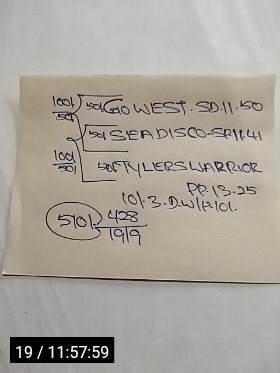 100/- 50/- GO WEST. SD.11.50
50/-
50/- SEADISCO-SP.11.41
100/- 50/- TYLERSWARRIOR
50/-
PP.13.25
10/-3.D.W/P.10/-
570/- 428
1919
19 / 11:57:59